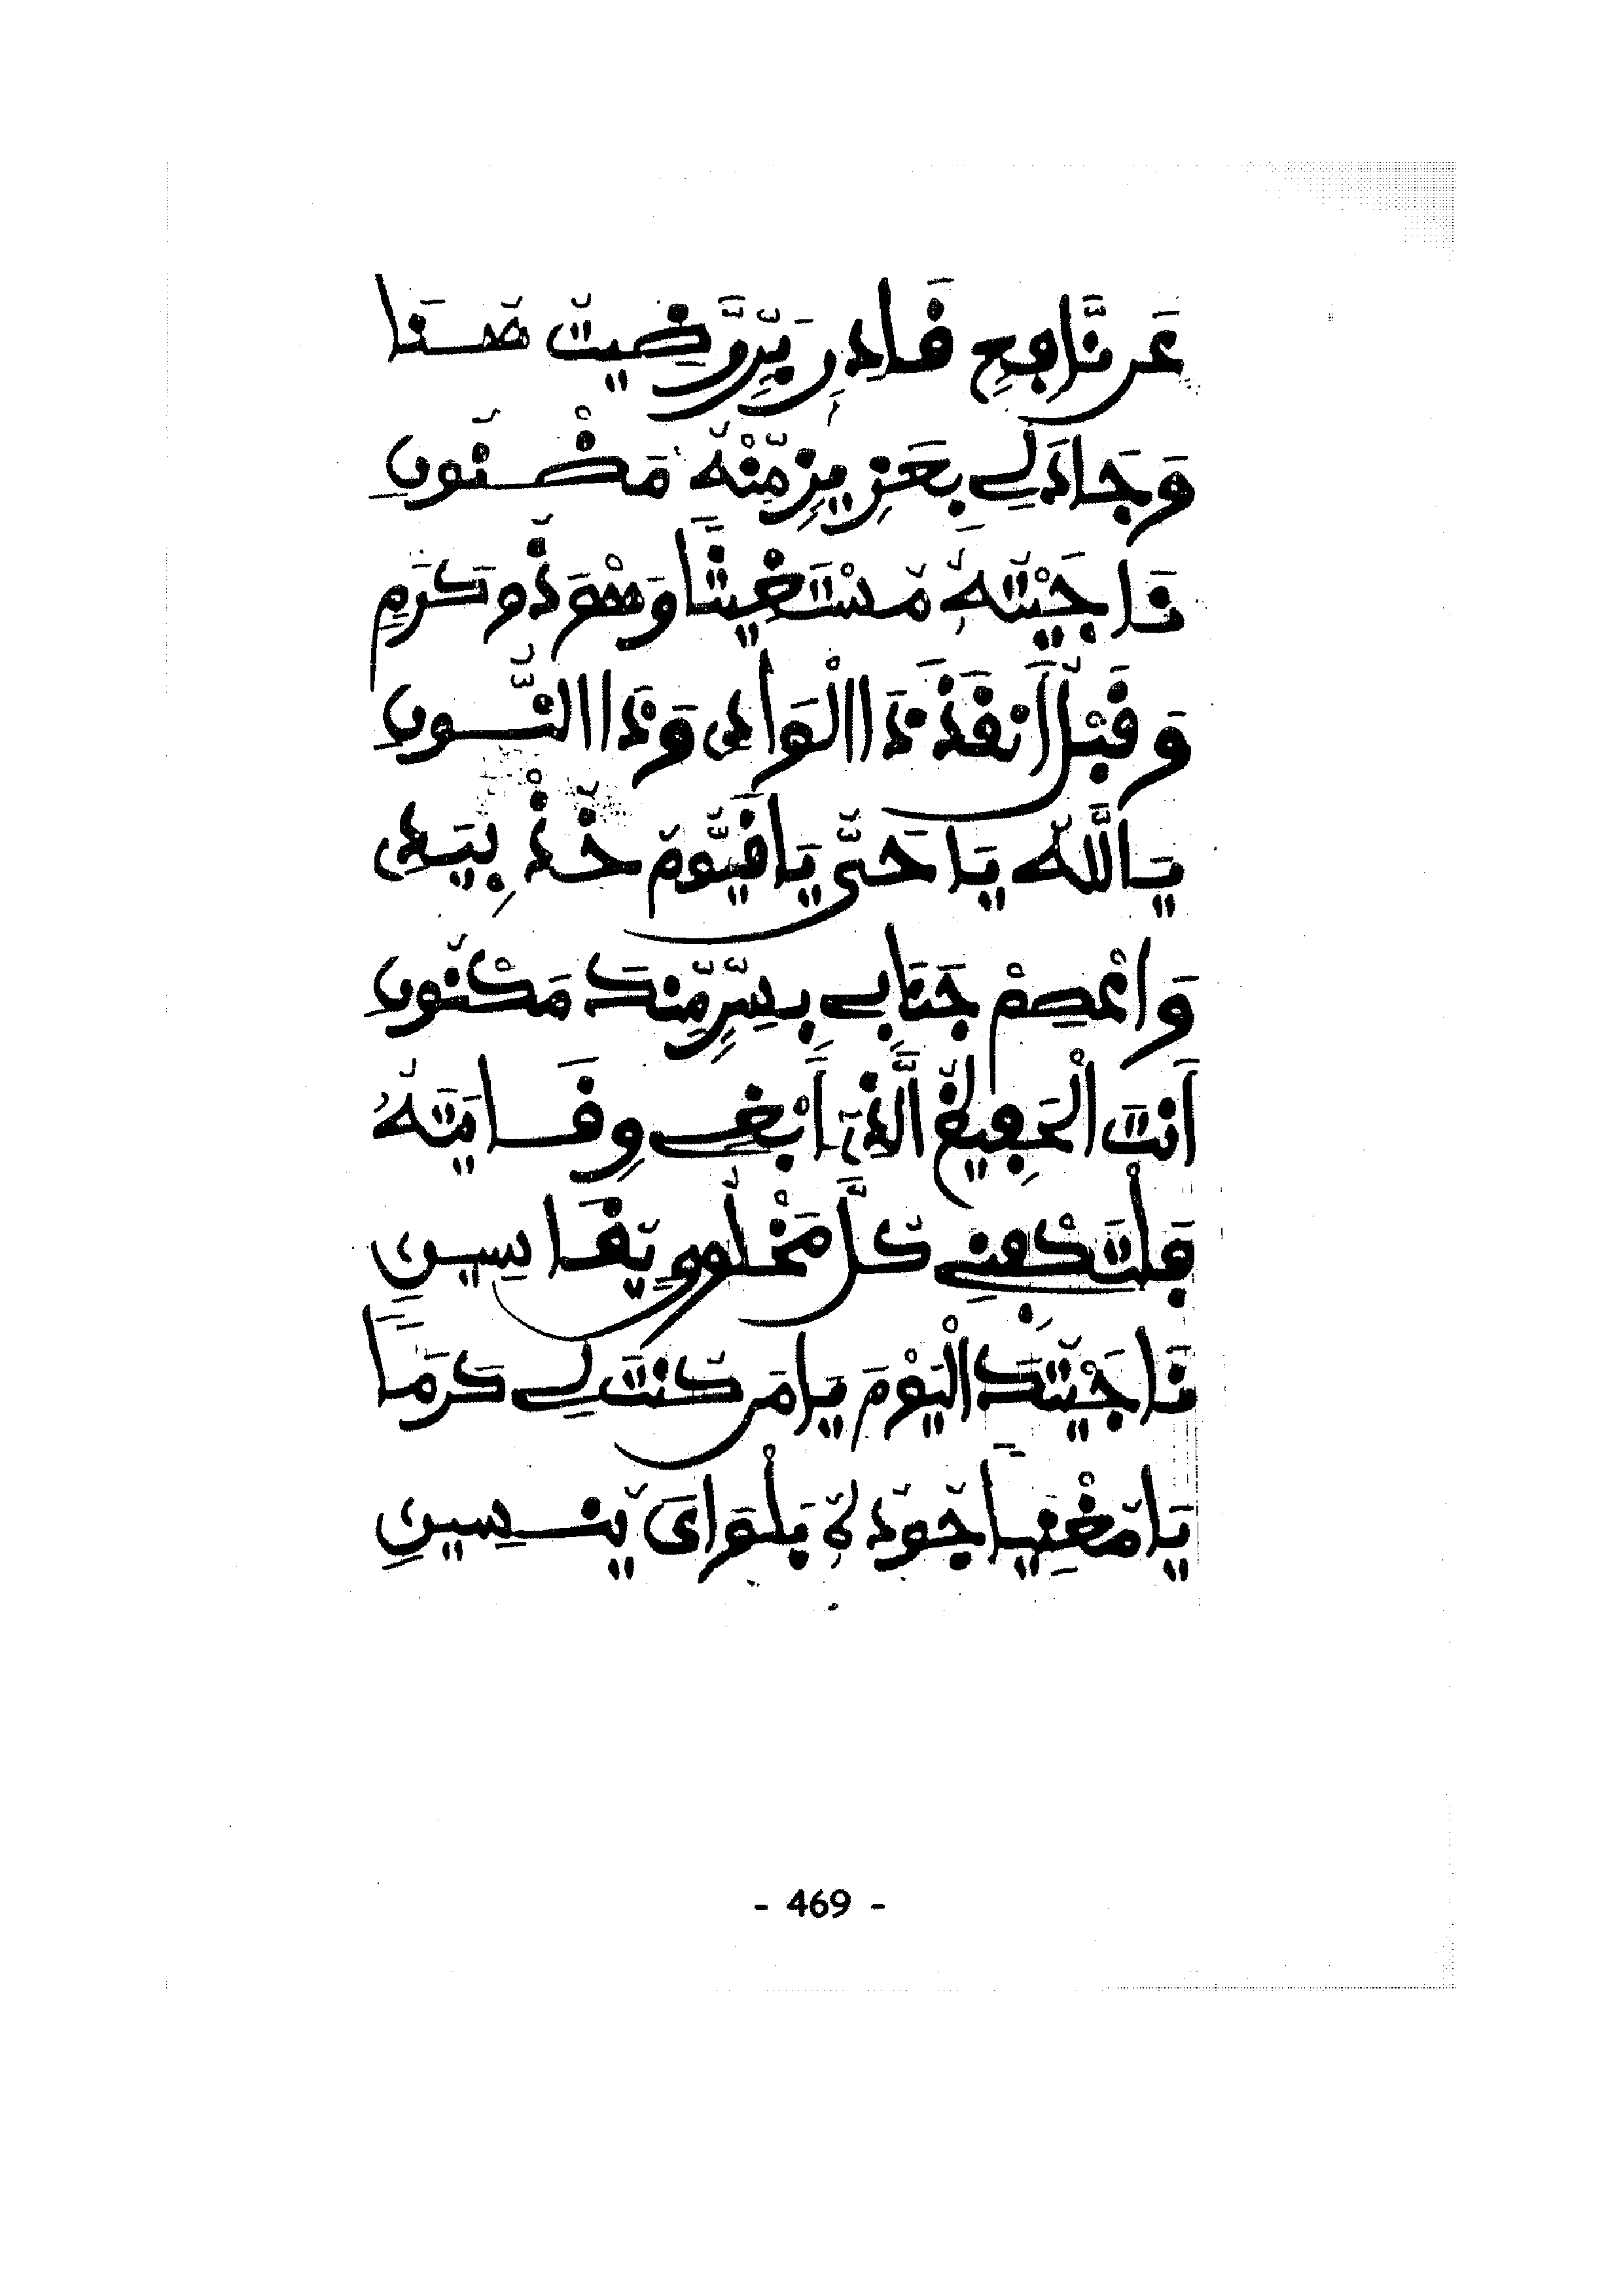 عَن نَّافِعٍ فَادِرٍ بَرٍّ رَّضِيتُ هُنَا
وَجَادَ لِي بِعَزِيزٍ مِّنْهُ مَكْنُونِ
نَاجَيْتُهُ مُسْتَغِيثًا وَهْوَ ذُو كَرَمٍ
وَقَبْلُ أَنقَذَ ذَا الْوَادِى وَذَا النُّونِ
يَاللَّهُ يَا حَىُّ يَا قَيُّومُ خُذْ بِيَدِى
وَاعْصِمْ جَنَابِي بِسِرٍّ مِّنكَ مَكْنُونِ
أَنتَ الْحَفِيظُ الَّذِى أَبْغِى وِقَايَتَهُ
فَلْتَكْفِنِي كُلَّ مَخْلُوقٍ يُقَاسِينِي
نَاجَيْتُكَ الْيَوْمَ يَا مَن كُنتَ لِي كَرَمًا
يَا مُغْنِيًا جُودُهُ بَلْوَاىَ يُنسِينِي
- 469 -